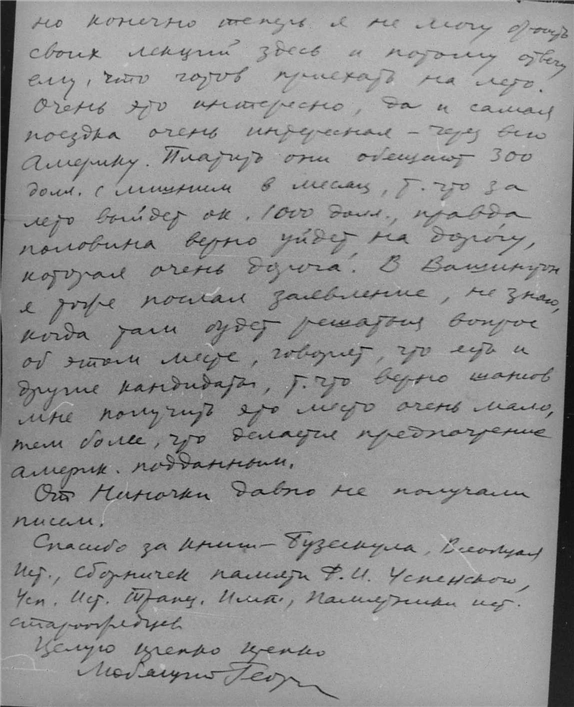 но конечно теперь я не могу бросить
своих лекций здесь и потому отвечу
ему, что готов приехать на лето.
Очень это интересно, да и самая
поездка очень интересная – через всю
Америку. Платить они обещают 300
долл. с лишним в месяц, т. что за
лето выйдет ок. 1000 долл., правда
половина верно уйдет на дорогу,
которая очень дорога. В Вашингтон
я тоже послал заявление, не знаю,
когда там будет решаться вопрос
об этом месте, говорят, что есть и
другие кандидаты, т. что верно шансов
мне получить это место очень мало,
тем более, что делается предпочтение
америк. подданным.
От Ниночки давно не получали
писем.
Спасибо за книги – Бузескула, Всеобщая
Ист., Сборничек памяти Ф. И. Успенского,
Усп. Ист. Трапез. Имп., Памятники ист.
старообрядцев
Целую крепко крепко
Любящий Георг